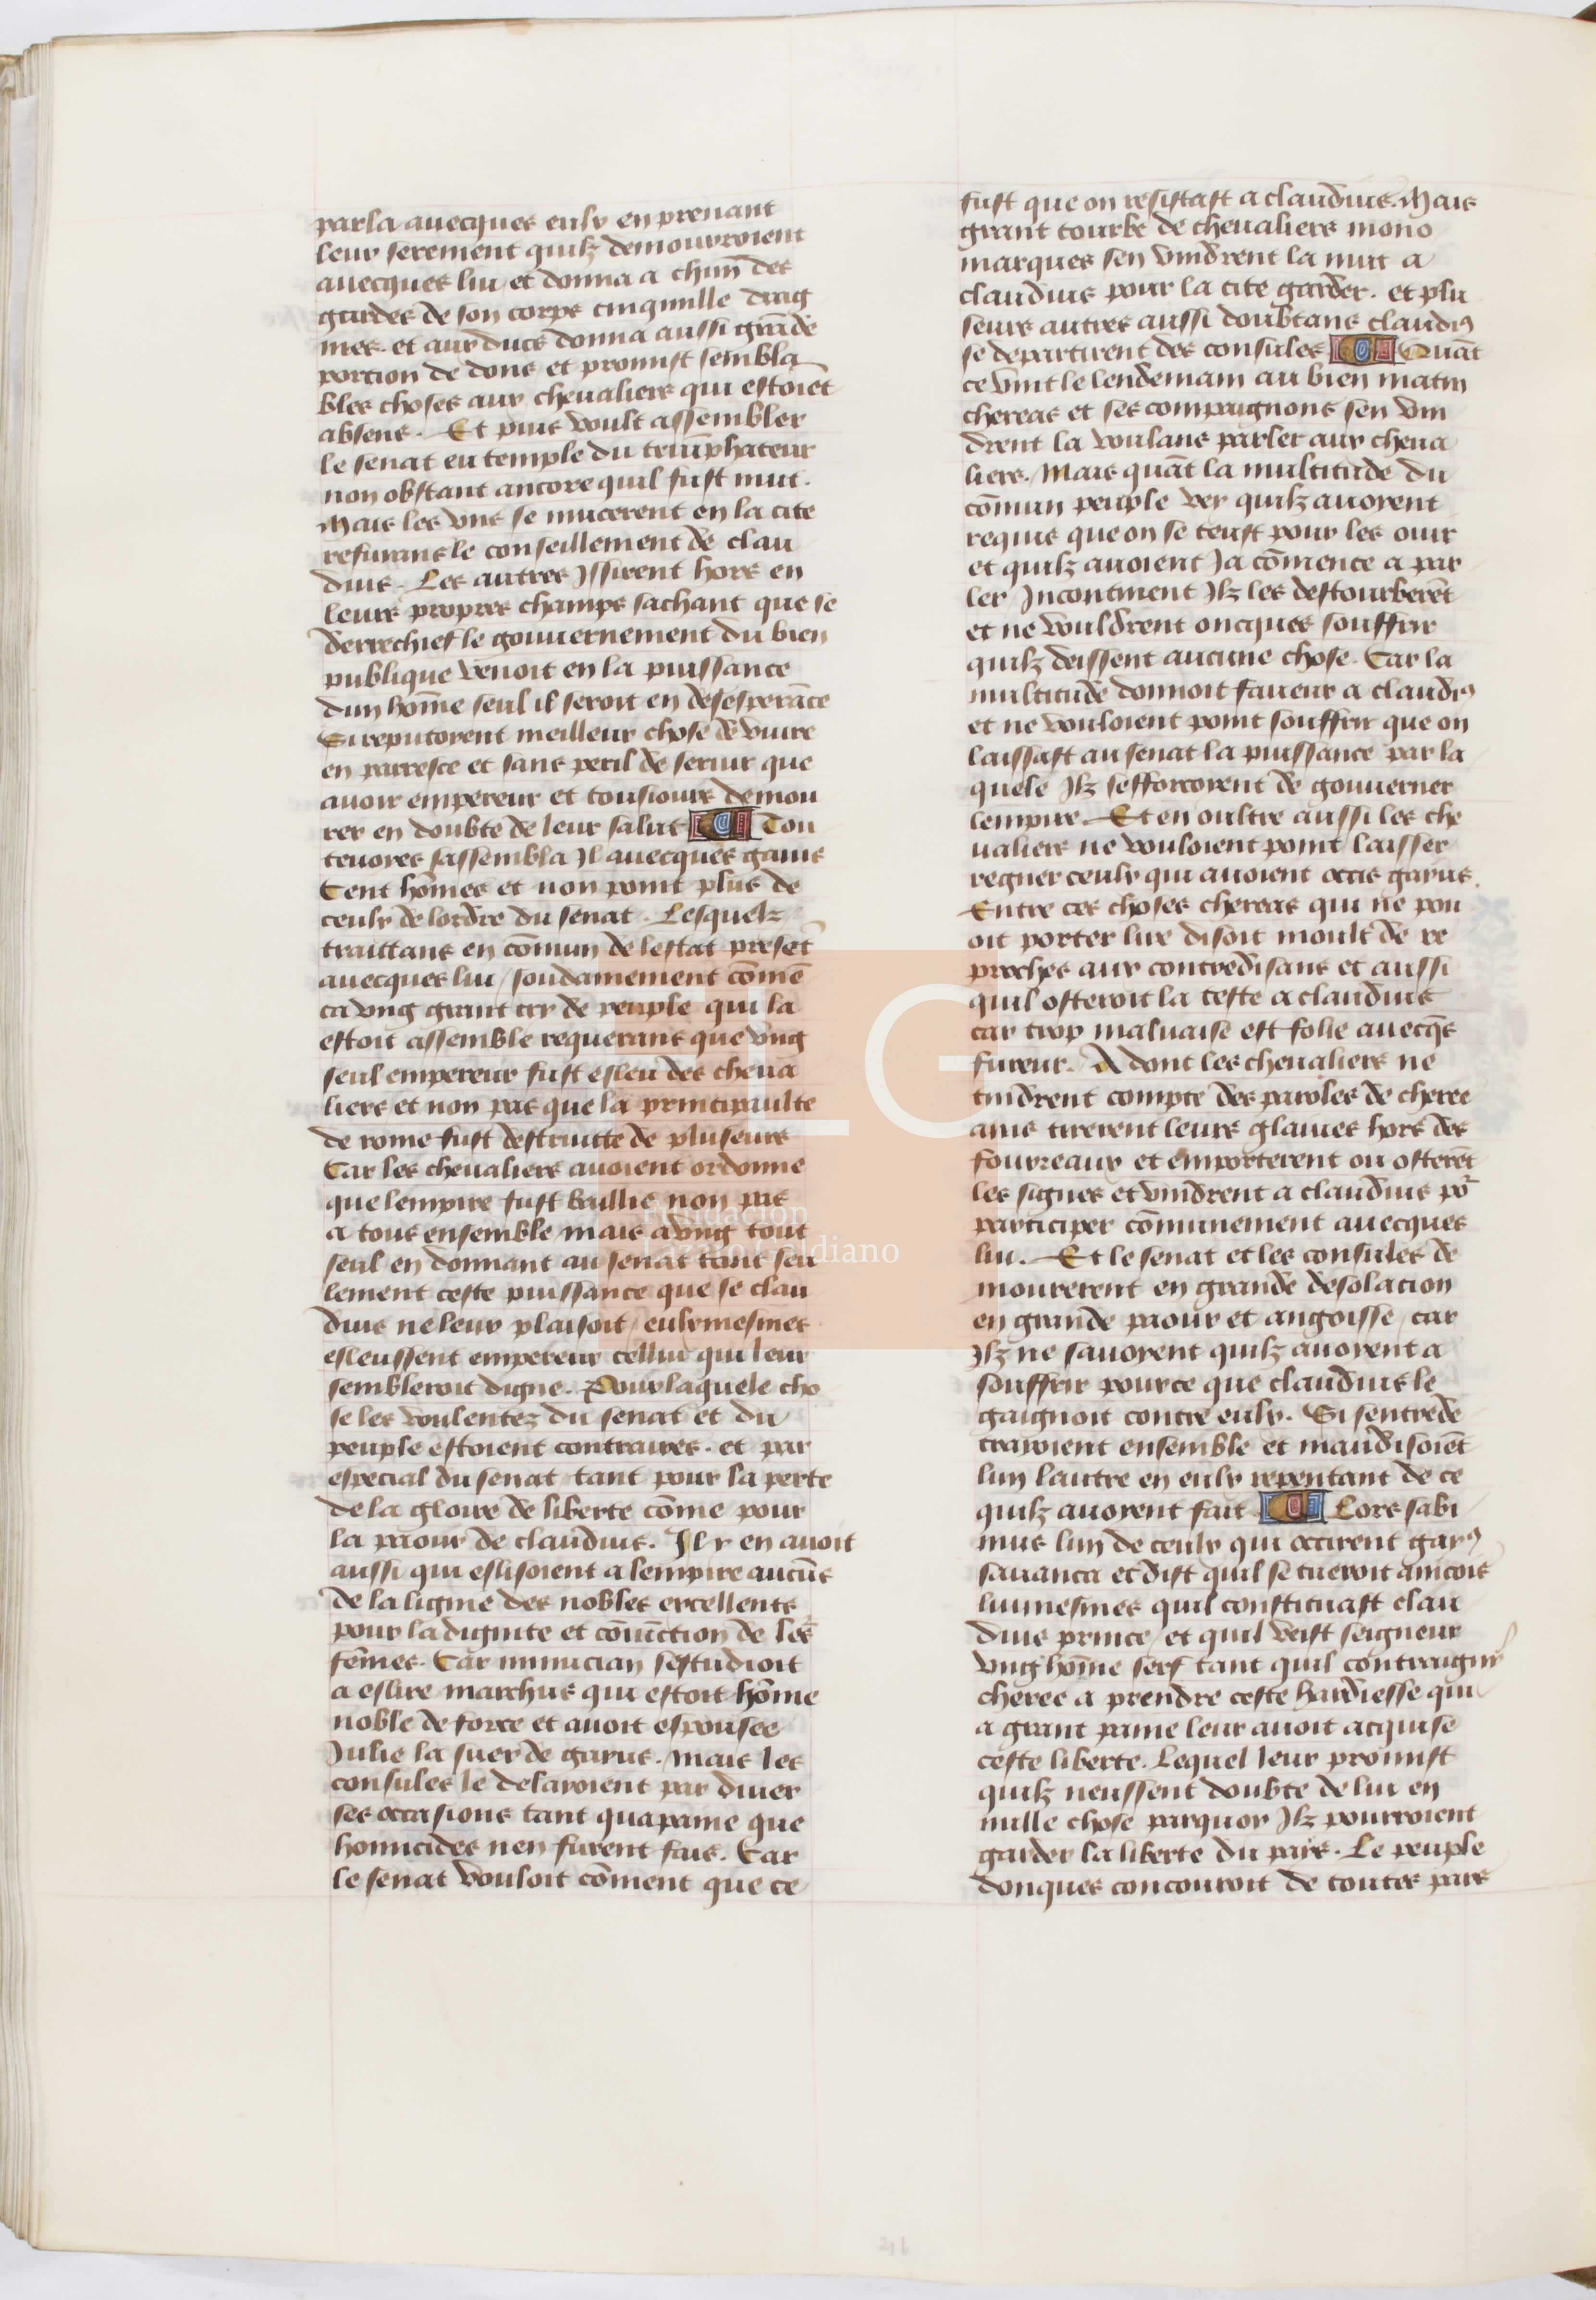 parla auecques eulx en prenant
leur serement quilz demourroient
auecques lui et donna a chun̄ des
gardes de son corps cinqmille drag
mes. et aux ducs donna aussi grāde
portion de dons et promist sembla
bles choses aux cheualiers qui estoiēt
absens. Et puis voult assembler
le senat eu temple du triūphateur
non obstant ancore quil fust nuit.
Mais les vns se mucerent en la cite
refusans le conseillement de clau
dius. Les autres Jssirent hors en
leurs propres champs sachant que se
derrechief le gouuernement du bien
publique venoit en la puissance
dun hōme seul il seroit en desesperāce
Si reputoient meilleur chose de viure
en parresce et sans peril de seruir que
auoir empereur et tousiours demou
rer en doubte de leur salut Tou
teuoies sassembla Jl auecques gaius
Cent hōmes et non point plus de
ceulx de lordre du senat. Lesquelz
traittans en cōmun de lestat presēt
auecques lui / soudainement cōmē
ca vng grant cry de peuple qui la
estoit assemble requerans que vng
seul empereur fust esleu des cheua
liers et non pas que la principaulte
de rome fust destruitte de pluseurs
Car les cheualiers auoient ordonne
que lempire fust baillie non pas
a tous ensemble mais a vng tout
seul en donnant au senat tant seu
lement ceste puissance que se clau
dius ne leur plaisoit / eulx mesmes
esleussent empereur cellui qui leur
sembleroit digne. Pour laquele cho
se les voulentez du senat et du
peuple estoient contraires. et par
especial du senat tant pour la perte
de la gloire de liberte cōme pour
la paour de claudius. Jl y en auoit
aussi qui eslisoient a lempire aucūs
de la lignie des nobles excellents
pour la dignite et cōiūction de les
fēmes. Car minucian sestudioit
a eslire marchus qui estoit hōme
noble de force et auoit espousee
Julie la suer de gayus. mais les
consules le delaioient par diuer
ses occasions tant qua paine que
homicides nen furent fais. Car
le senat vouloit cōment que ce
fust que on resistast a claudius. Mais
grant tourbe de cheualiers mono
marques sen vindrent la nuit a
claudius pour la cite garder. et plu
seurs autres aussi doubtans claudiꝰ
se departirent des consules Quāt
ce vint le lendemain au bien matin
chereas et ses compaignons sen vin
drent la voulans parler aux cheua
liers. Mais quāt la multitude du
cōmun peuple vey quilz auoyent
requis que on se teust pour les ouir
et quilz auoient Ja cōmence a par
ler Jncontinent Jlz les destourberēt
et ne vouldrent oncques souffrir
quilz deissent aucune chose. Car la
multitude donnoit faueur a claudiꝰ
et ne vouloient point souffrir que on
laissast au senat la puissance par la
quele Jlz sefforcoyent de gouuerner
lempire. Et en oultre aussi les che
ualiers ne vouloient point laisser
regner ceulx qui auoient occis gayus.
Entre ces choses chereas qui ne pou
oit porter lire disoit moult de re
proches aux contredisans et aussi
quil osteroit la teste a claudius
car trop maluaise est folie auecq̄s
fureur. Adont les cheualiers ne
tindrent compte des paroles de cheree
ains tirerent leurs glaiues hors des
fourreaux et emporterent ou osterēt
les signes et vindrent a claudius po͛
participer cōmunement auecques
lui. Et le senat et les consules de
mourerent en grande desolacion
en grande paour et angoisse / car
Jlz ne sauoyent quilz auoyent a
souffrir pource que claudius le
gaignoit contre eulx. Si sentrede
traioient ensemble et maudisoiēt
lun lautre en eulx repentant de ce
quilz auoyent fait Lors sabi
nus lun de ceulx qui occirent gayꝰ
sauanca et dist quil se tueroit aincois
luimesmes quil constituast clau
dius prince / et quil veist seigneur
vng hōme serf tant quil contraignīt
cheree a prendre ceste hardiesse qui
a grant paine leur auoit acquise
ceste liberte. Lequel leur promist
quilz neussent doubte de lui en
nulle chose parquoy Jlz pourroient
garder la liberte du pais. Le peuple
donques concouroit de toutes pars
LG
Fundación
Lázaro Galdiano